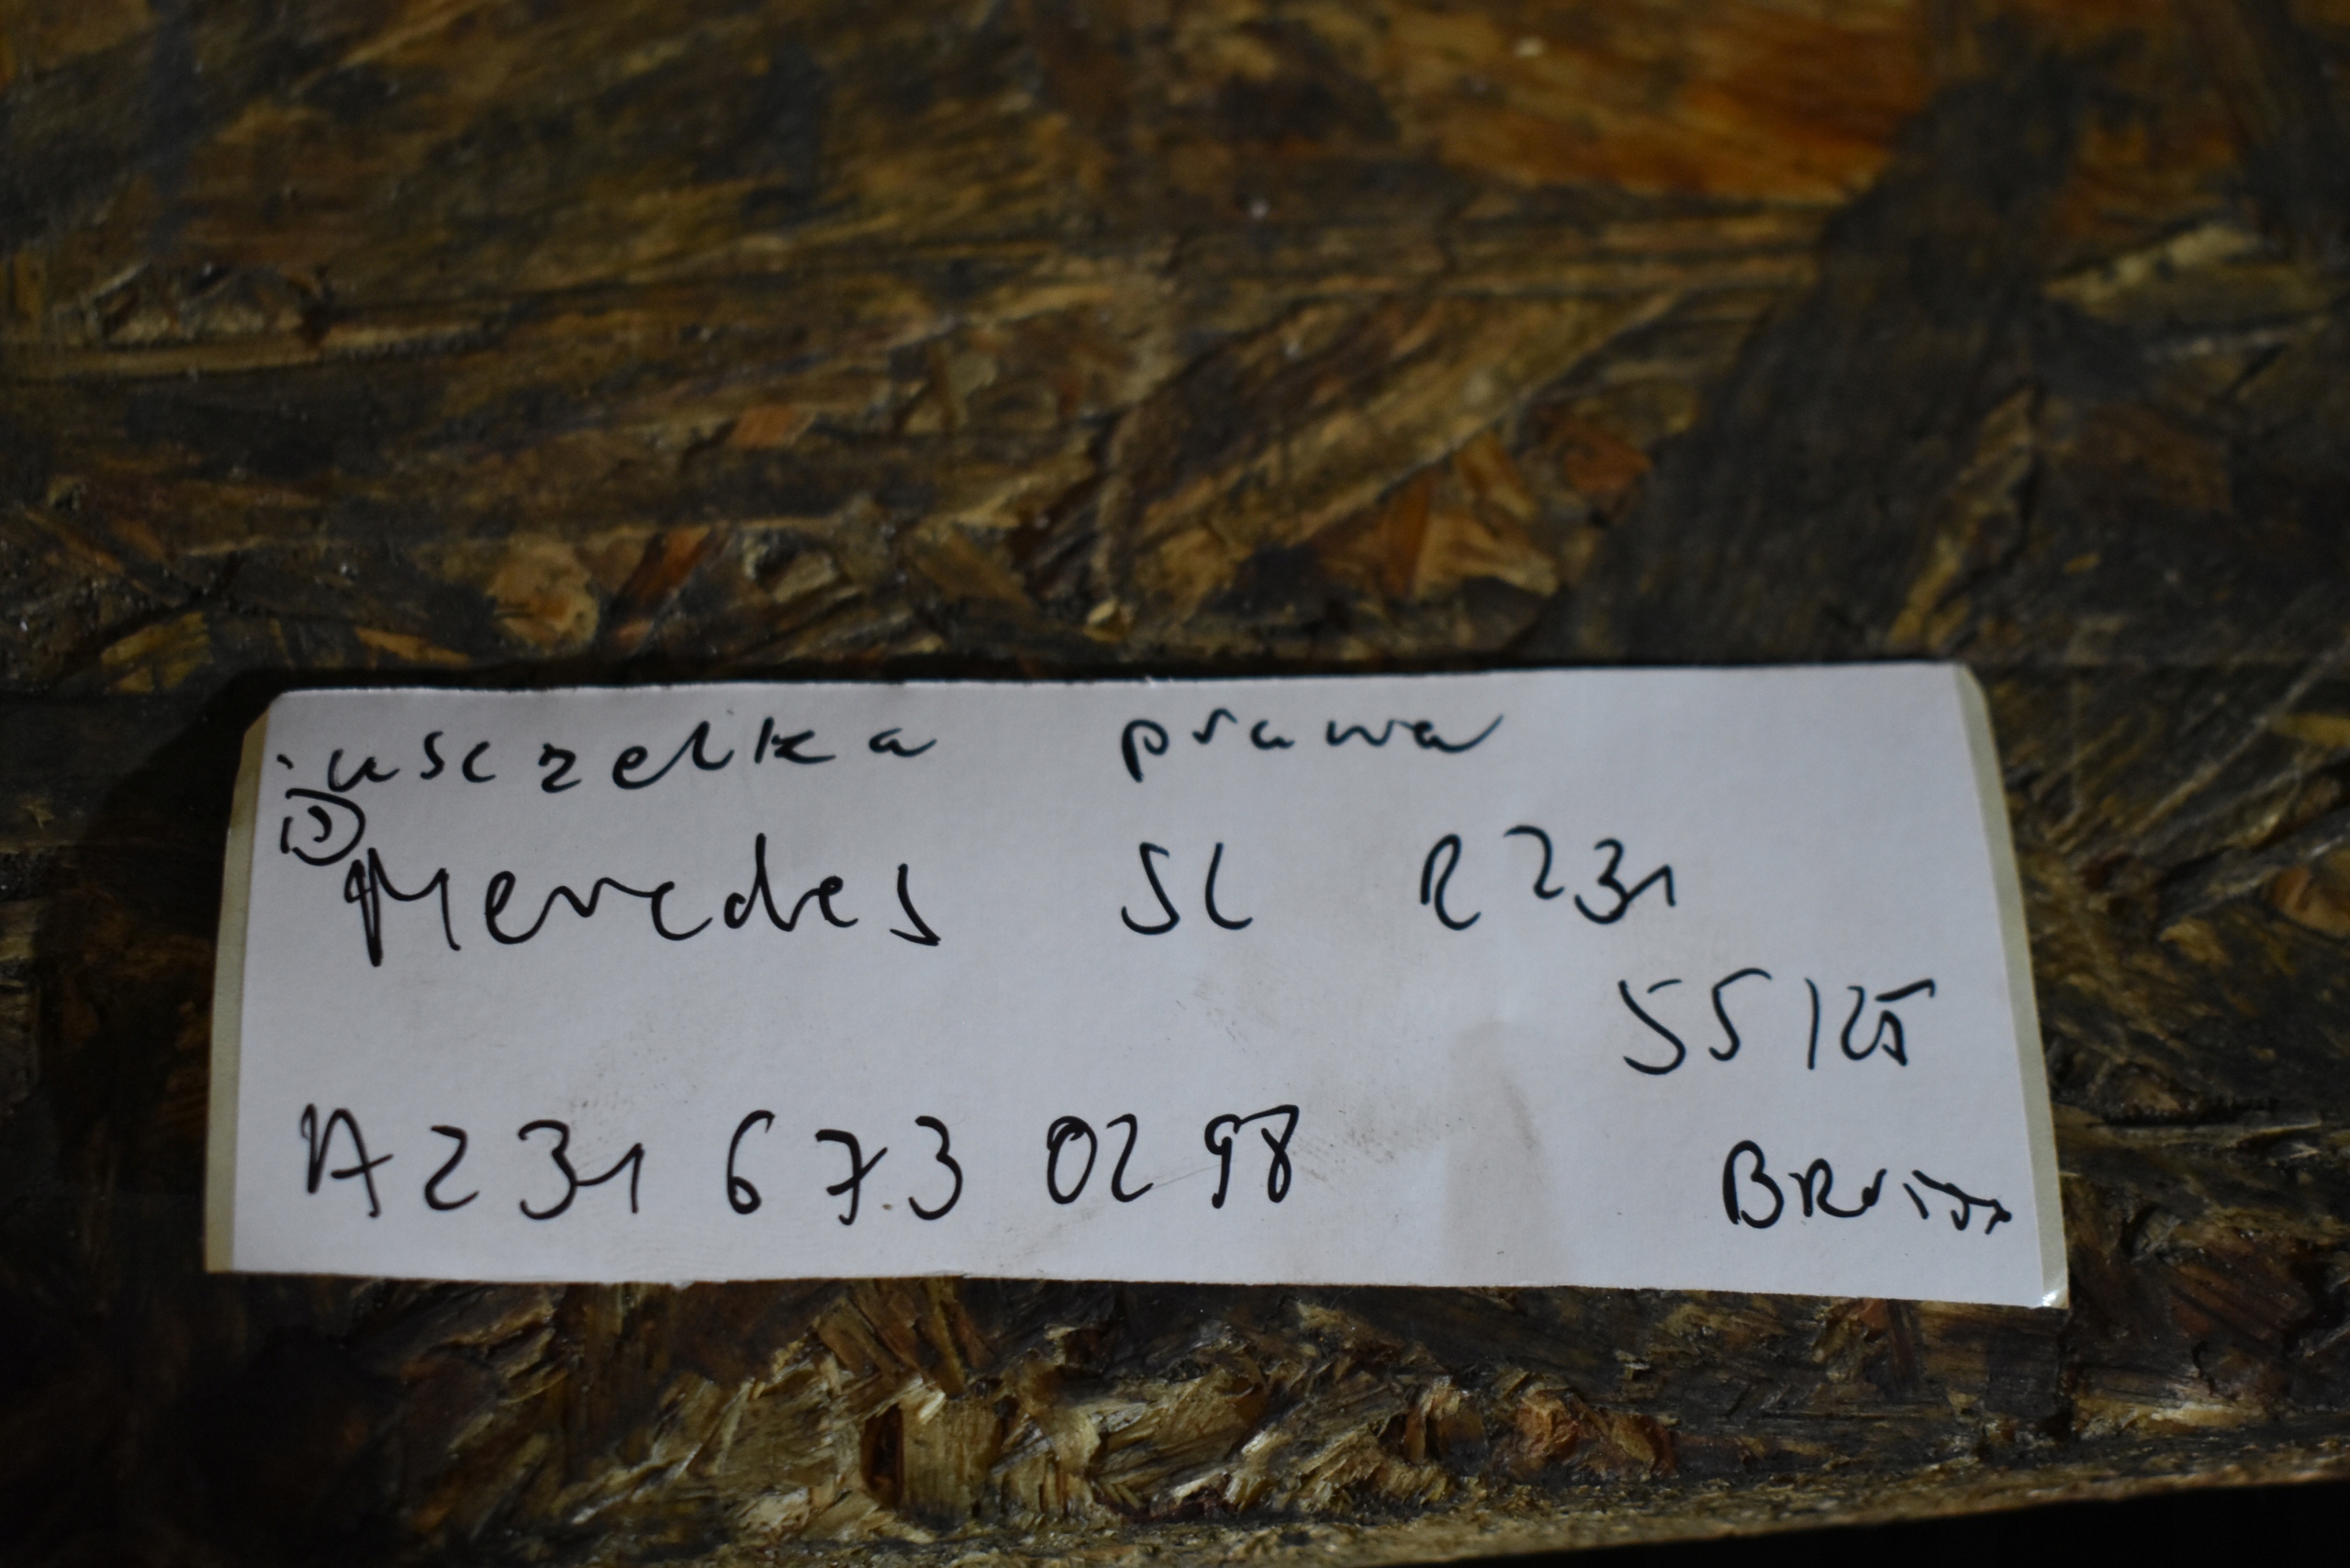 uszczelka prawa
Mercedes SL R231
55125
A 231 673 02 98